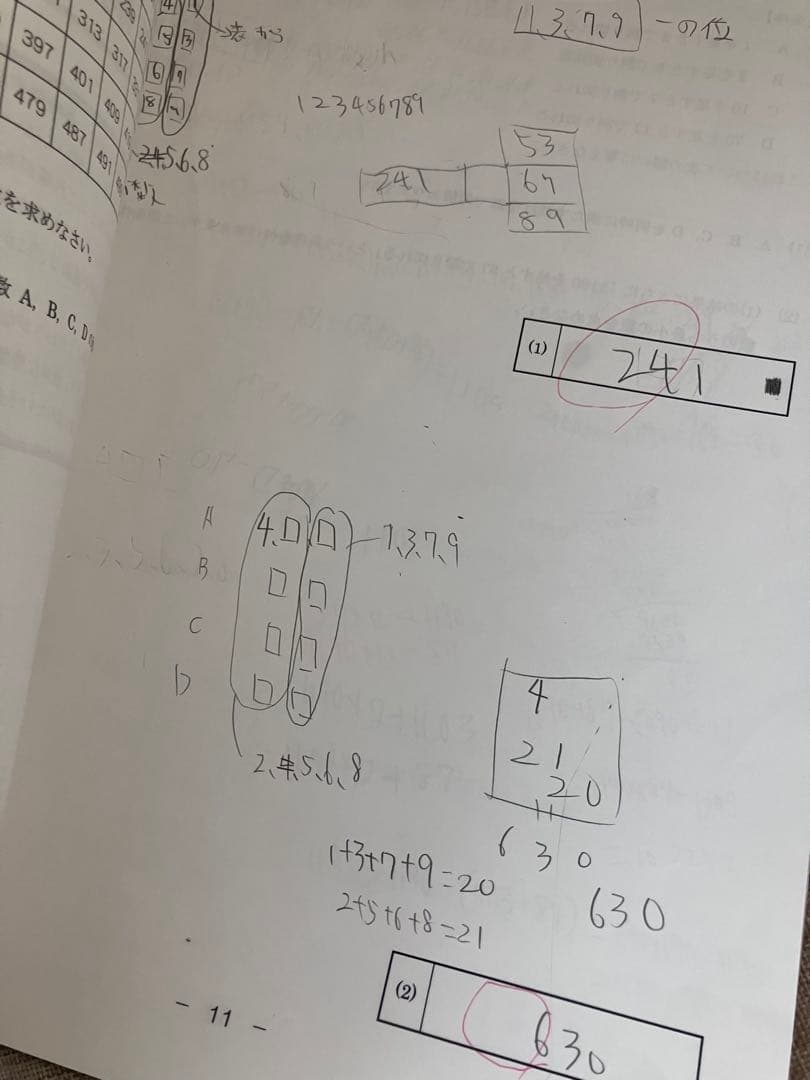 1、3、7、9 一の位
4 1
313 317
5 3
表から
397 401 409
6 7
8 9
479 487 491
5、6、8
123456789
53
241 67
89
を求めなさい。
数 A, B, C, D の
(1) 241
A 4、□ □ 1、3、7、9
B □ □
C □ □
D □ □
2、4、5、6、8
4
21
20
630
1+3+7+9=20
2+5+6+8=21
630
(2) 630
- 11 -